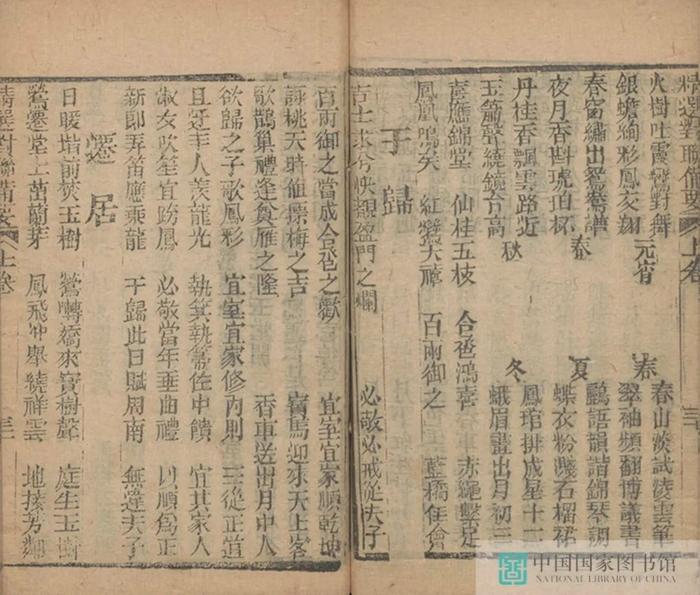 精選對聯備要 上卷 三十
元宵
火樹吐霞鸞對舞
銀蟾絢彩鳳交翔
春
春山淡試淩雲筆
翠袖頻翻博議書
春
春窗繡出鴛鴦譜
夜月香斟琥珀杯
夏
鸝語韻諧錦琴調
蝶衣粉濺石榴裙
秋
丹桂香飄雲路近
玉簫聲繞鏡台高
冬
鳳琯排成星十二
蛾眉畫出月初三
應錦堂 仙桂五枝 合巹鴻喜 赤繩繫足
鳳凰鳴矣 紅鸞天禧 百兩御之 藍橋佳會
于歸
吉士求兮快覩盈門之爛 必敬必戒從夫子
百兩御之當成合巹之歡 宜室宜家順乾坤
詠桃夭時值摽梅之吉 寶馬迎來天上客
歌鵲巢禮逢奠雁之隆 香車送出月中人
欲歸之子歌鳳彩 宜室宜家修內則 三從正道
且迓幸人羨龍光 執箕執箒佐中饋 宜其家人
淑女吹笙宜跨鳳 必敬當年垂曲禮 以順為正
新郎弄笛應乘龍 于歸此日賦周南 無違夫子
遷居
日暖堦前茂玉樹 鶯囀喬來寶樹馨 庭生玉樹
鶯遷堂上茁蘭芽 鳳飛冲舉繞祥雲 地接芳鄰
精選對聯備要 上卷
中国国家图书馆
NATIONAL LIBRARY OF CHINA